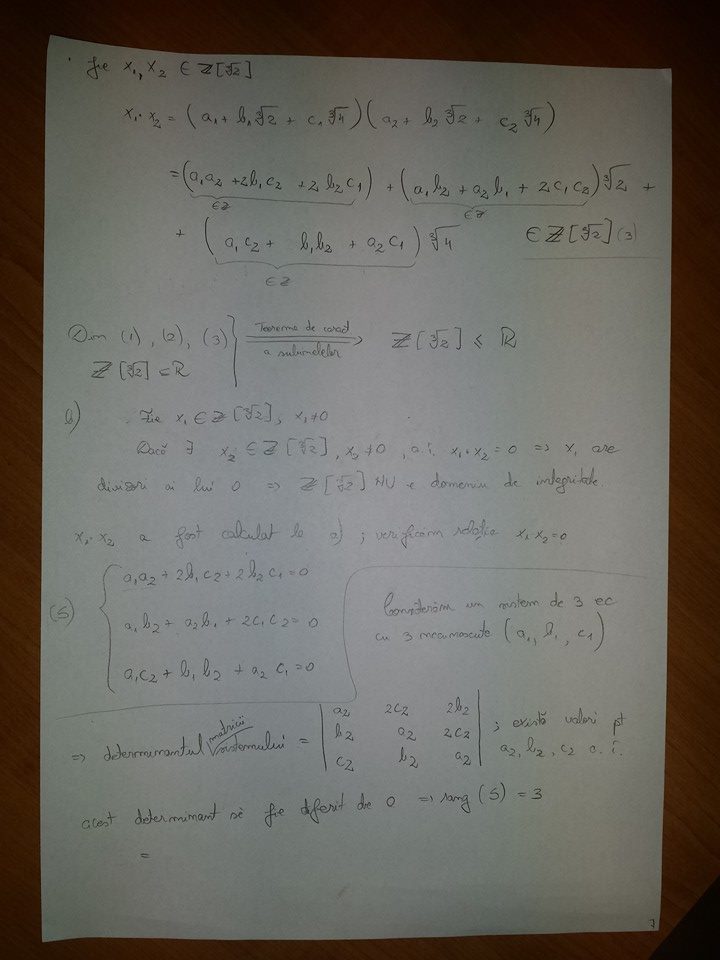 . Fie x₁, x₂ ∈ ℤ[∛2]
x₁·x₂ = (a₁ + b₁∛2 + c₁∛4)(a₂ + b₂∛2 + c₂∛4)
= (a₁a₂ + 2b₁c₂ + 2b₂c₁) + (a₁b₂ + a₂b₁ + 2c₁c₂)∛2 +
∈ℤ ∈ℤ
+ (a₁c₂ + b₁b₂ + a₂c₁)∛4 ∈ ℤ[∛2] (3)
∈ℤ
Din (1), (2), (3)
ℤ[∛2] ⊂ ℝ } Teorema de caract a subinelelor ⟹ ℤ[∛2] ≤ ℝ
b) . Fie x₁ ∈ ℤ[∛2], x₁≠0
Dacă ∃ x₂ ∈ ℤ[∛2], x₂≠0, a.î. x₁·x₂ = 0 => x₁ are
divizori ai lui 0 => ℤ[∛2] NU e domeniu de integritate.
x₁·x₂ a fost calculat la a) ; verificăm relația x₁·x₂=0
(S) { a₁a₂ + 2b₁c₂ + 2b₂c₁ = 0
a₁b₂ + a₂b₁ + 2c₁c₂ = 0
a₁c₂ + b₁b₂ + a₂c₁ = 0
Considerăm un sistem de 3 ec
cu 3 necunoscute (a₁, b₁, c₁)
=> determinantul matricii sistemului = | a₂ 2c₂ 2b₂ |
| b₂ a₂ 2c₂ |
| c₂ b₂ a₂ |
; există valori pt
a₂, b₂, c₂ a.î.
acest determinant să fie diferit de 0 => rang (S) = 3
=